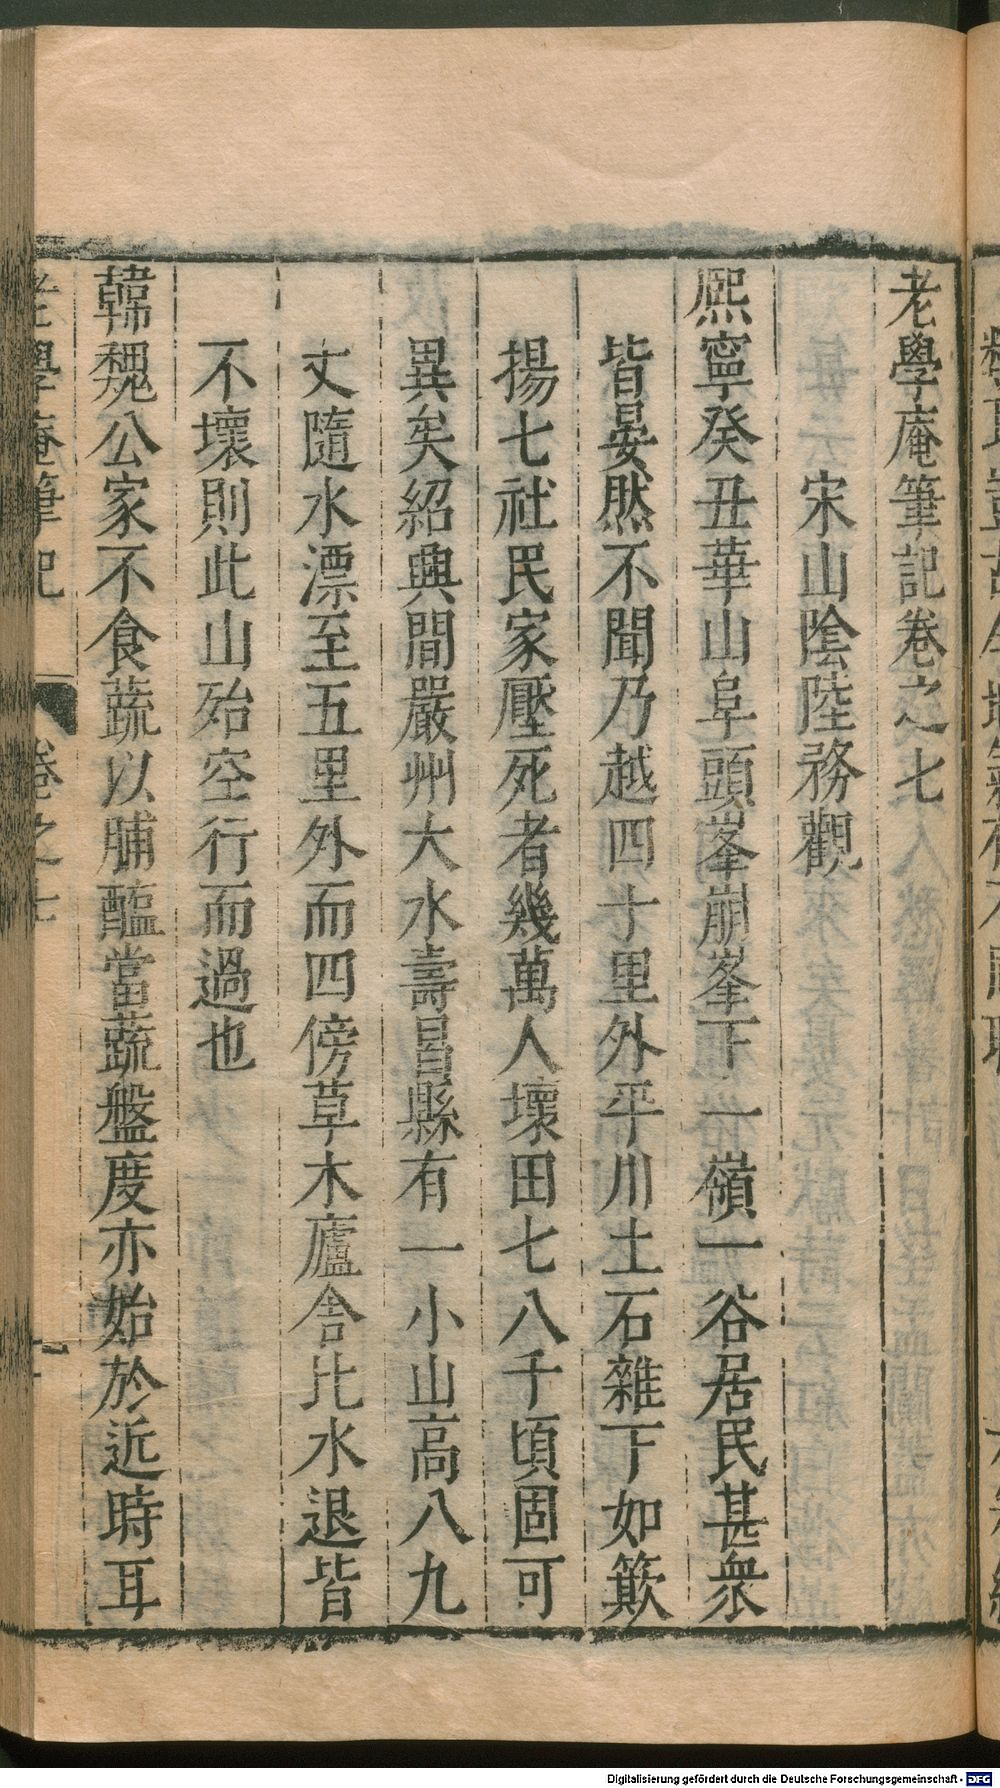 老學庵筆記卷之七
宋山陰陸務觀
熙寧癸丑華山阜頭峯崩峯下一嶺一谷居民甚衆
皆晏然不聞乃越四十里外平川土石雜下如簸
揚七社民家壓死者幾萬人壞田七八千頃固可
異矣紹興間嚴州大水壽昌縣有一小山高八九
丈隨水漂至五里外而四傍草木廬舍比水退皆
不壞則此山殆空行而過也
韓魏公家不食蔬以脯醢當蔬盤度亦始於近時耳
老學庵筆記 卷之七 一
Digitalisierung gefördert durch die Deutsche Forschungsgemeinschaft - DFG